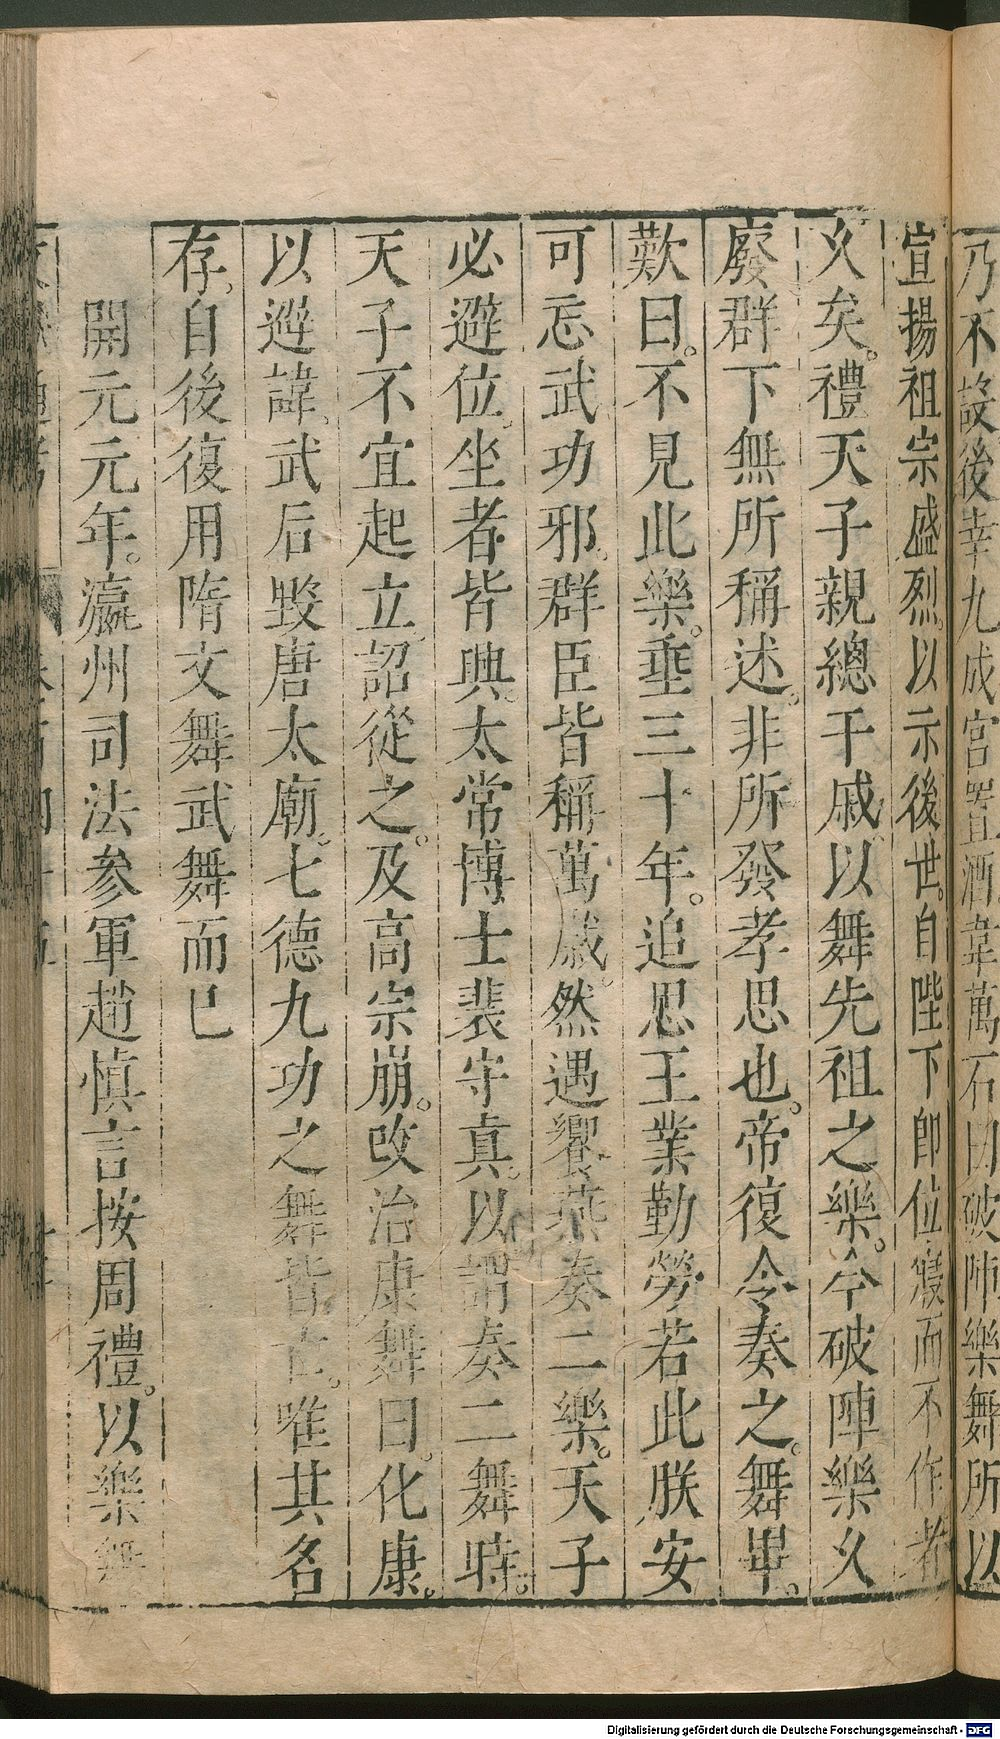 乃不設後幸九成宮置酒韋萬石曰破陣樂舞所以
宣揚祖宗盛烈以示後世自陛下即位寢而不作者
久矣禮天子親總干戚以舞先祖之樂今破陣樂久
廢群下無所稱述非所發孝思也帝復令奏之舞畢
歎曰不見此樂垂三十年追思王業勤勞若此朕安
可忘武功邪群臣皆稱萬歲然遇饗燕奏二樂天子
必避位坐者皆興太常博士裴守真以謂奏二舞時
天子不宜起立詔從之及高宗崩改治康舞曰化康
以避諱武后毀唐太廟七德九功之舞皆亡唯其名
存自後復用隋文舞武舞而已
開元元年瀛州司法參軍趙慎言按周禮以樂舞
Digitalisierung gefördert durch die Deutsche Forschungsgemeinschaft - DFG